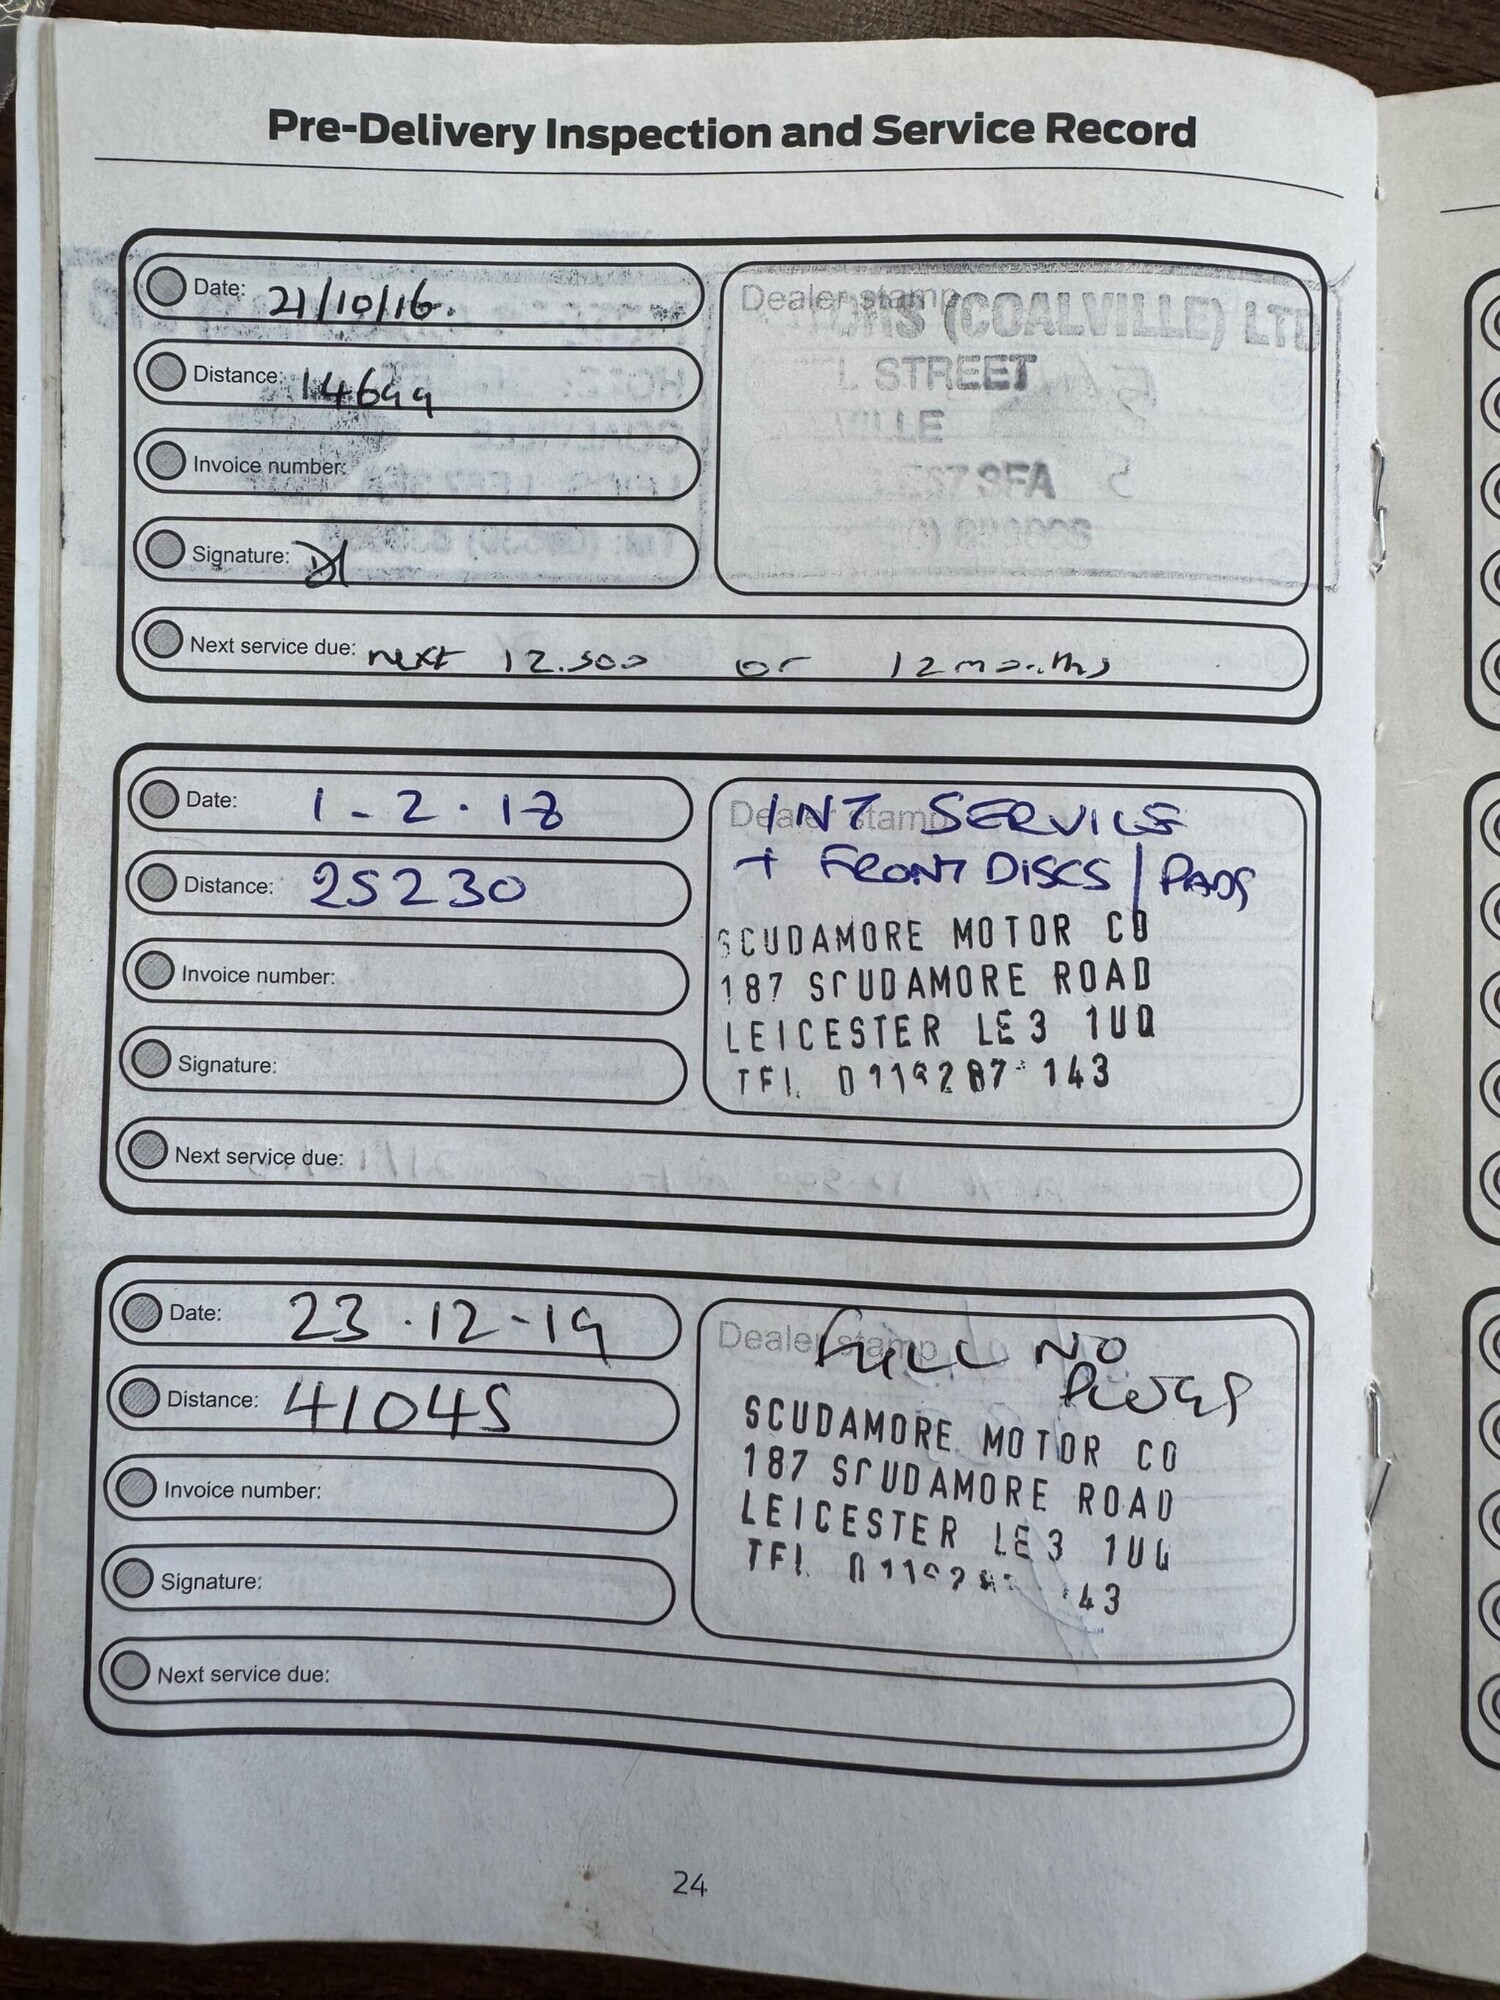 Pre-Delivery Inspection and Service Record
Date: 21/10/16.
Distance: 14699
Invoice number:
Signature:
Next service due: next 12.500 or 12 months
Dealer stamp
(COALVILLE) LTD
STREET
VILLE
3FA
Date: 1-2.18
Distance: 25230
Invoice number:
Signature:
Next service due:
Dealer stamp
INT SERVICE
+ FRONT DISCS / PADS
SCUDAMORE MOTOR CO
187 SCUDAMORE ROAD
LEICESTER LE3 1UQ
TEL 143
Date: 23.12-19
Distance: 41045
Invoice number:
Signature:
Next service due:
Dealer stamp
FULL NO
PLUGS
SCUDAMORE MOTOR CO
187 SCUDAMORE ROAD
LEICESTER LE3 1UQ
TEL 43
24